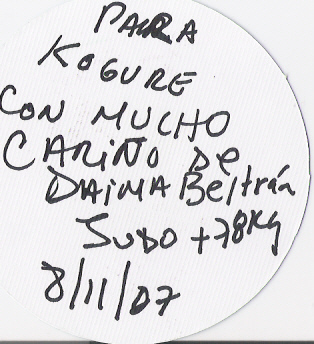 PARA
KOGURE
CON MUCHO
CARiÑO De
DAimA Beltrán
JUDO +78Kg
8/11/07